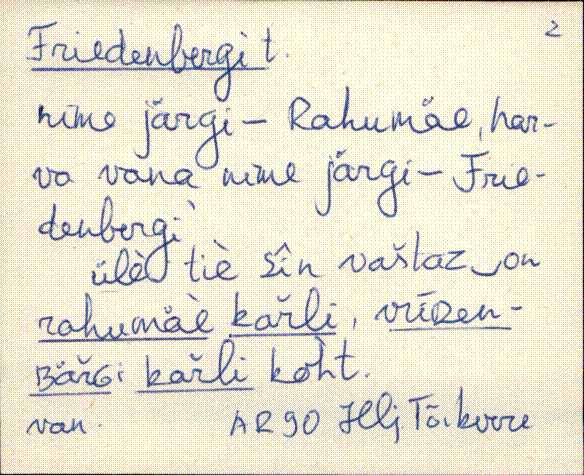 2
Friedenbergi t.
nime järgi – Rahumäe, har-
va vana nime järgi – Frie-
denbergi
ülè tiè sîn vaštaz‿on
rahumäè kařli, vrīDen-
Bäřgi kařli koht.
van. AR 90 Hlj